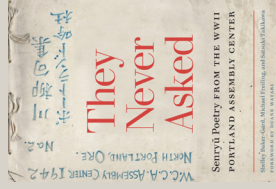 No. 2.
W.C.C.A. ASSEMBLY CENTER 1942
NORTH PORTLAND, ORE.
They
Never
Asked
Senryū Poetry FROM THE WWII
PORTLAND ASSEMBLY CENTER
Shelley Baker-Gard, Michael Freiling, and Satsuki Takikawa
FOREWORD BY DUANE WATARI